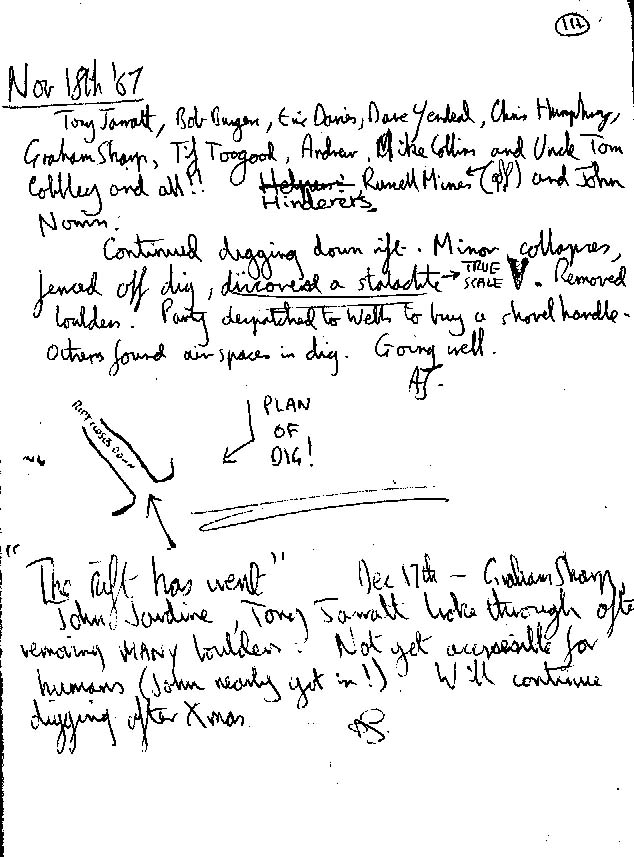 117
Nov 18th '67
Tony Jarratt, Bob , Eric Davies, Dave Yendeal, Chris Humphrey,
Graham Sharp, Tif Toogood, Andrew, Mike Collins and Uncle Tom
Cobbley and all!! Helpers: Russell Mines (off) and John
Hinderers
Continued digging down rift. Minor collapses,
fenced off dig, discovered a stalactite → TRUE SCALE. Removed
boulders. Party despatched to Wells to buy a shovel handle.
Others found air spaces in dig. Going well.
AJ.
RIFT CLOSES DOWN
PLAN
OF
DIG!
"The rift has went" Dec 17th – Graham Sharp,
John Jardine, Tony Jarratt broke through after
removing MANY boulders. Not yet accessible for
humans (John nearly got in!) Will continue
digging after Xmas.